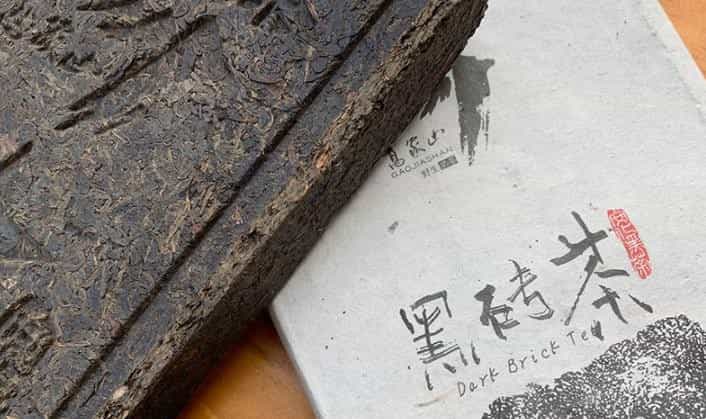 高家山
GAOJIASHAN
黑砖茶
Dark Brick Tea